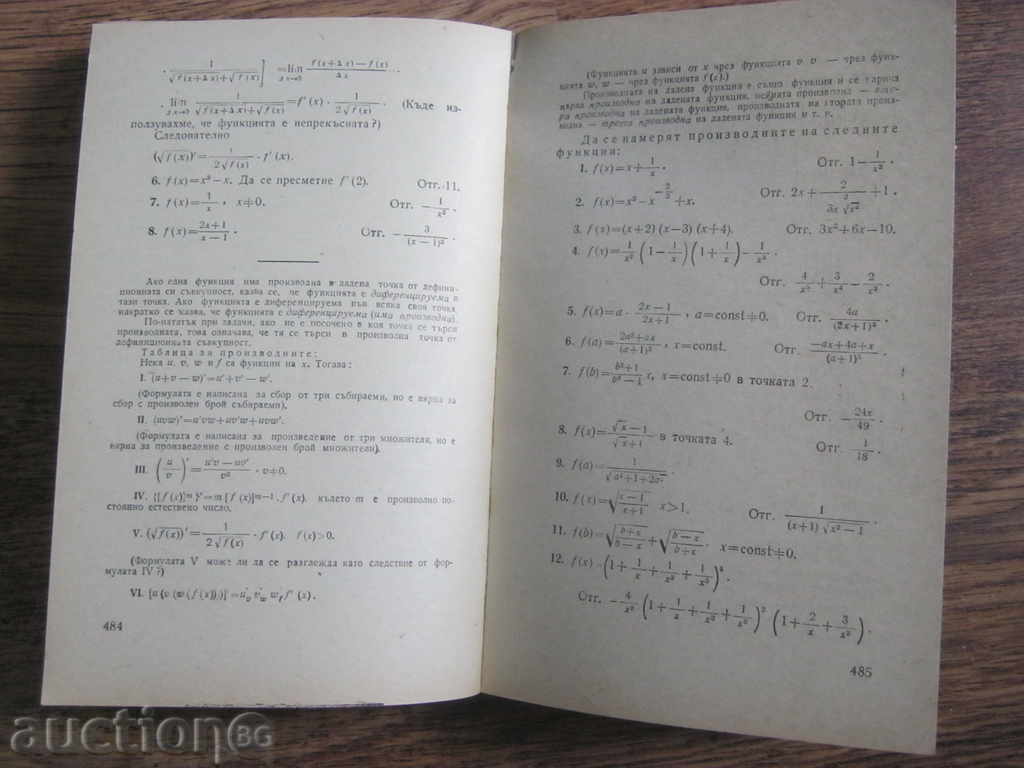 · 1/(√f(x+Δx)+√f(x)) ] = lim Δx→0 (f(x+Δx)−f(x))/Δx ...
· lim Δx→0 1/(√f(x+Δx)+√f(x)) =f'(x) · 1/(2√f(x)) . (Къде из-
ползувахме, че функцията е непрекъсната?)
Следователно
(√f(x))'= 1/(2√f(x)) · f'(x).
6. f(x)=x³−x. Да се пресметне f'(2). Отг. 11.
7. f(x)= 1/x , x≠0. Отг. − 1/x² .
8. f(x)= (2x+1)/(x−1) . Отг. − 3/(x−1)² .
Ако една функция има производна в дадена точка от дефини-
ционната си съвкупност, казва се, че функцията е диференцируема в
тази точка. Ако функцията е диференцируема във всяка своя точка,
накратко се казва, че функцията е диференцируема (има производна).
По-нататък при задачи, ако не е посочено в коя точка се търси
производната, това означава, че тя се търси в произволна точка от
дефиниционната съвкупност.
Таблица за производните:
Нека u, v, w и f са функции на x. Тогава:
I. (u+v−w)'=u'+v'−w'.
(Формулата е написана за сбор от три събираеми, но е вярна за
сбор с произволен брой събираеми).
II. (uvw)'=u'vw+uv'w+uvw'.
(Формулата е написана за произведение от три множителя, но е
вярна за произведение с произволен брой множители).
III. (u/v)' = (u'v−uv')/v² , v≠0.
IV. {[f(x)]ᵐ}'=m[f(x)]ᵐ⁻¹.f'(x), където m е произволно по-
стоянно естествено число.
V. (√f(x))' = 1/(2√f(x)) · f'(x). f(x)>0.
(Формулата V може ли да се разглежда като следствие от фор-
мулата IV?)
VI. [u(v(w(f(x))))]'=u'ᵥ v'w w'f f'(x).
484
(Функцията u зависи от x чрез функцията v, v — чрез функ-
цията w, w — чрез функцията f(x).)
Производната на дадена функция е също функция и се нарича
първа производна на дадената функция, нейната производна — вто-
ра производна на дадената функция, производната на втората произ-
водна — трета производна на дадената функция и т. н.
Да се намерят производните на следните
функции:
1. f(x)=x+ 1/x . Отг. 1− 1/x² .
2. f(x)=x²−x^(−2/3)+x. Отг. 2x+ 2/(3x ∛x²) +1.
3. f(x)=(x+2)(x−3)(x+4). Отг. 3x²+6x−10.
4. f(x)= 1/x² (1− 1/x)(1+ 1/x)− 1/x³ .
Отг. 4/x⁵ + 3/x⁴ − 2/x³ .
5. f(x)=a · (2x−1)/(2x+1) , a=const≠0. Отг. 4a/(2x+1)² .
6. f(a)= (2a²+ax)/(a+1)² , x=const. Отг. (−ax+4a+x)/(a+1)³ .
7. f(b)= (b²+1)/(b³−1) x, x=const≠0 в точката 2.
Отг. − 24x/49 .
8. f(x)= (√x−1)/(√x+1) в точката 4. Отг. 1/18 .
9. f(a)= 1/√(a²+1+2a) .
10. f(x)=√((x−1)/(x+1)) x>1. Отг. 1/((x+1)√(x²−1)) .
11. f(b)=√((b+x)/(b−x)) +√((b−x)/(b+x)) , x=const≠0.
12. f(x)=(1+ 1/x + 1/x² + 1/x³)⁴.
Отг. − 4/x² (1+ 1/x + 1/x² + 1/x³)³ (1+ 2/x + 3/x²).
485
auction BG